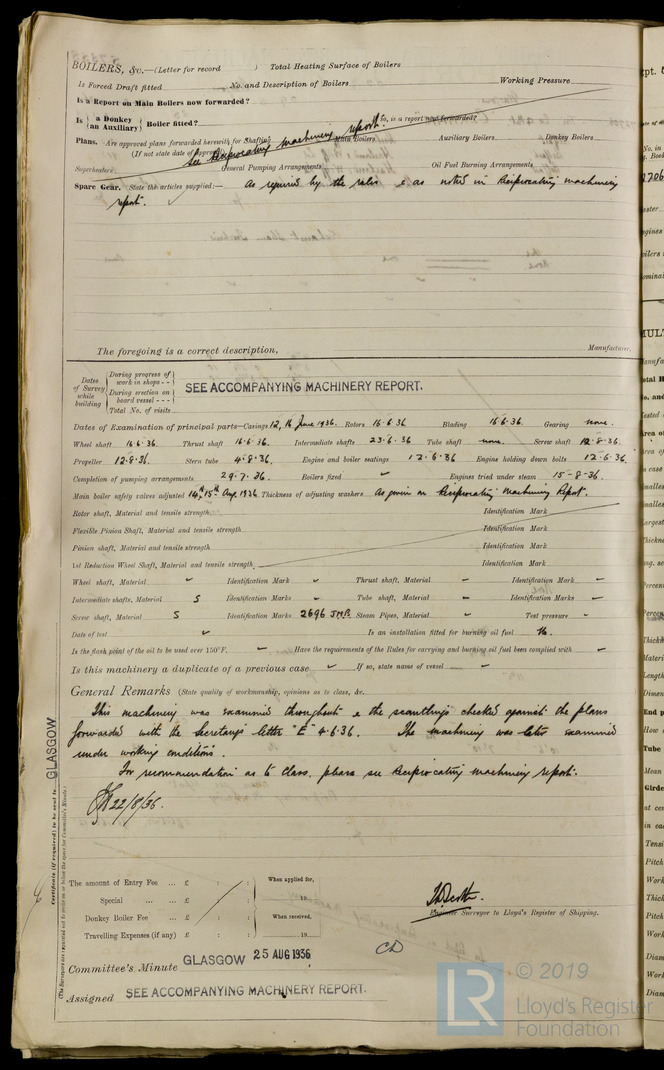 BOILERS, &c.—(Letter for record ) Total Heating Surface of Boilers
Is Forced Draft fitted No. and Description of Boilers Working Pressure
Is a Report on Main Boilers now forwarded?
Is { a Donkey (an Auxiliary) } Boiler fitted? If so, is a report now forwarded?
Plans. Are approved plans forwarded herewith for Shafting Main Boilers Auxiliary Boilers Donkey Boilers
(If not state date of approval)
see Reciprocating machinery report.
Superheaters General Pumping Arrangements Oil Fuel Burning Arrangements
Spare Gear. State the articles supplied:— As required by the rules & as noted in Reciprocating machinery
report.
The foregoing is a correct description,
Manufacturer.
Dates of Survey while building
During progress of work in shops - -
During erection on board vessel - - -
Total No. of visits
SEE ACCOMPANYING MACHINERY REPORT.
Dates of Examination of principal parts—Casings 12, 16 June 1936. Rotors 16.6.36 Blading 16.6.36. Gearing none.
Wheel shaft 16.6.36. Thrust shaft 16.6.36. Intermediate shafts 23.6.36 Tube shaft none. Screw shaft 12.8.36.
Propeller 12.8.36. Stern tube 4.8.36. Engine and boiler seatings 12.6.36 Engine holding down bolts 12.6.36.
Completion of pumping arrangements 29.7.36. Boilers fixed ✓ Engines tried under steam 15-8-36.
Main boiler safety valves adjusted 14th, 15th Aug. 1936 Thickness of adjusting washers As given on Reciprocating Machinery Report.
Rotor shaft, Material and tensile strength Identification Mark
Flexible Pinion Shaft, Material and tensile strength Identification Mark
Pinion shaft, Material and tensile strength Identification Mark
1st Reduction Wheel Shaft, Material and tensile strength Identification Mark
Wheel shaft, Material ✓ Identification Mark ✓ Thrust shaft, Material ✓ Identification Mark ✓
Intermediate shafts, Material S Identification Marks ✓ Tube shaft, Material ✓ Identification Marks ✓
Screw shaft, Material S Identification Marks 2696 JMB. Steam Pipes, Material ✓ Test pressure ✓
Date of test ✓ Is an installation fitted for burning oil fuel No.
Is the flash point of the oil to be used over 150°F. ✓ Have the requirements of the Rules for carrying and burning oil fuel been complied with ✓
Is this machinery a duplicate of a previous case ✓ If so, state name of vessel ✓
General Remarks (State quality of workmanship, opinions as to class, &c.
This machinery was examined throughout & the scantlings checked against the plans
forwarded with the Secretary's letter "E" 4.6.36. The machinery was later examined
under working conditions.
For recommendation as to Class, please see Reciprocating machinery report.
22/8/36.
Certificate (if required) to be sent to GLASGOW
(The Surveyors are requested not to write on or below the space for Committee's Minute.)
The amount of Entry Fee ... £ : : When applied for,
Special ... ... £ : : 19
Donkey Boiler Fee ... £ : : When received,
Travelling Expenses (if any) £ : : 19
Engineer Surveyor to Lloyd's Register of Shipping.
Committee's Minute GLASGOW 25 AUG 1936
Assigned SEE ACCOMPANYING MACHINERY REPORT.
LR © 2019
Lloyd's Register
Foundation